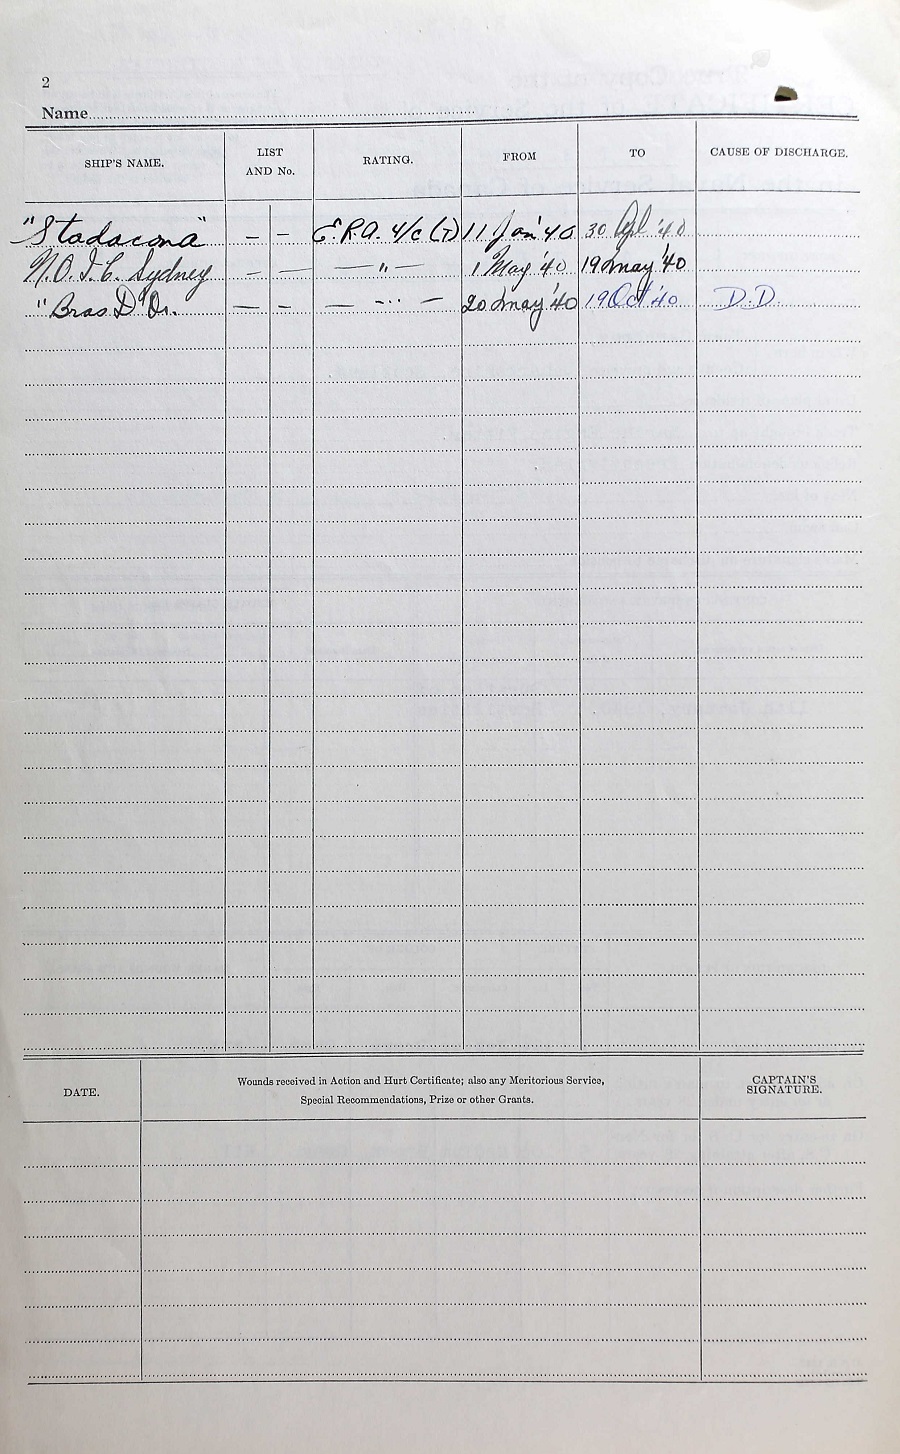 2
Name
SHIP'S NAME. LIST AND No. RATING. FROM TO CAUSE OF DISCHARGE.
"Stadacona" — — E.R.A. 4/C (T) 11 Jan '40 30 Apl '40
N.O.I.C. Sydney — — — " — 1 May '40 19 May '40
"Bras D'Or. — — — " — 20 May '40 19 Oct '40 D.D.
DATE. Wounds received in Action and Hurt Certificate; also any Meritorious Service, CAPTAIN'S
Special Recommendations, Prize or other Grants. SIGNATURE.